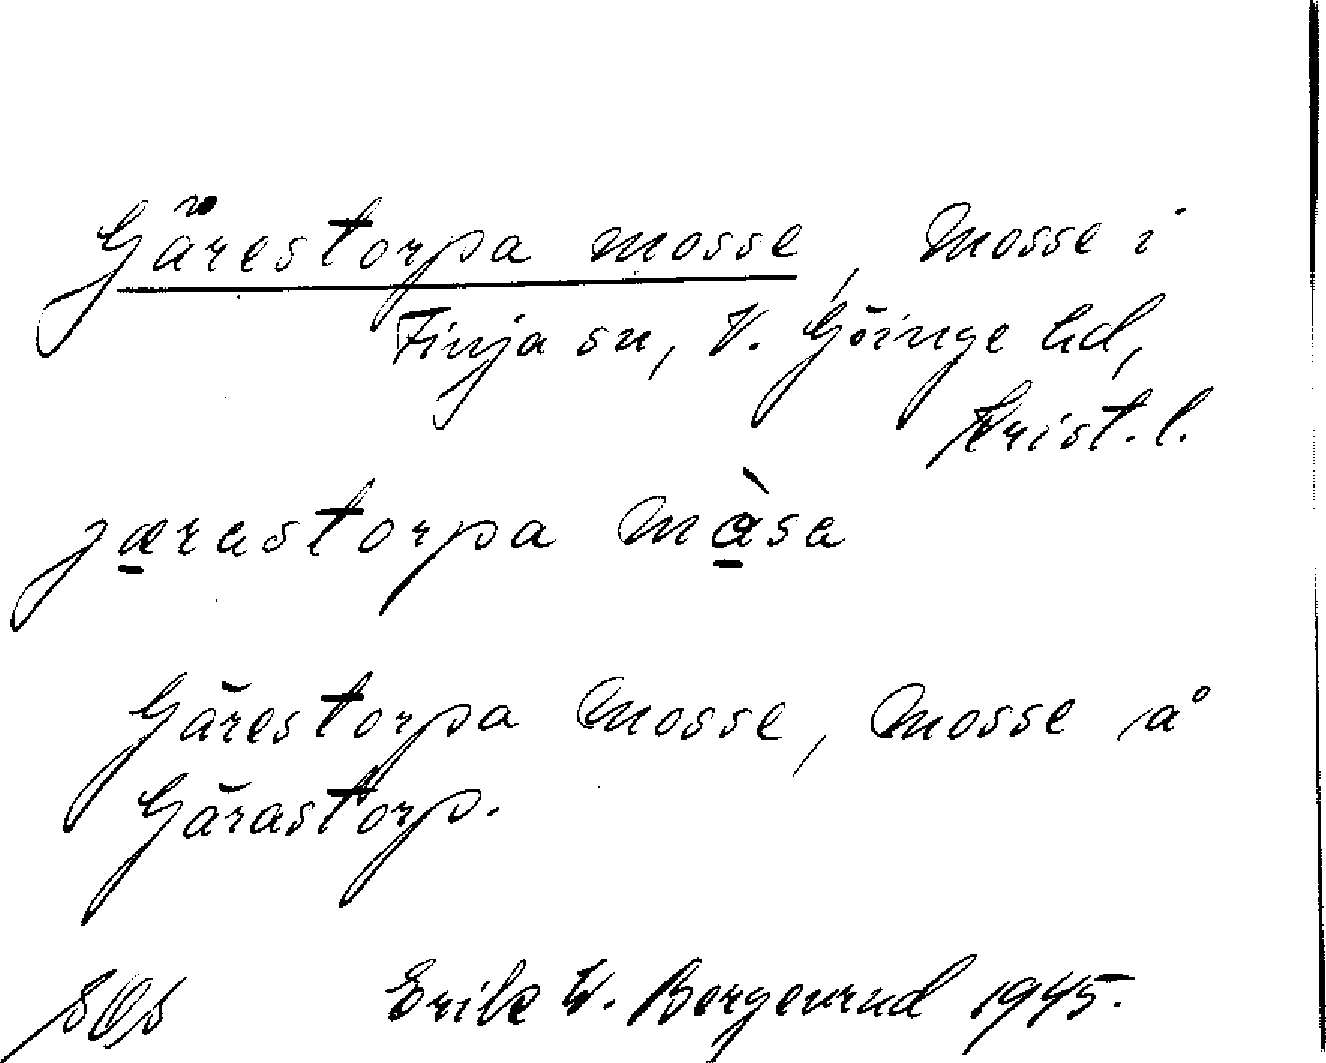 Gärestorpa mosse, Mosse i
Finja sn, V. Göinge hd,
Krist. l.
jærastorpa màsa
Gärestorpa Mosse, Mosse å
Gärastorp.
SOS Erik W. Bergenrud 1945.